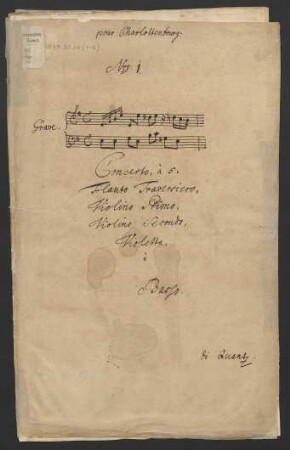 pour Charlottenbourg
No. 1.
Grave.
Concerto, à 5.
Flauto Traversiero,
Violino Primo,
Violino Secondo,
Violetta,
è
Basso
di Quantz.